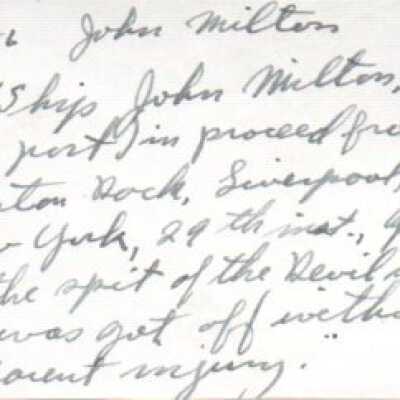 John Milton
Ship John Milton,
port) in proceed fro
ton Dock, Liverpool,
York, 29th inst.,
the spit of the Devil
was got off witho
parent injury."